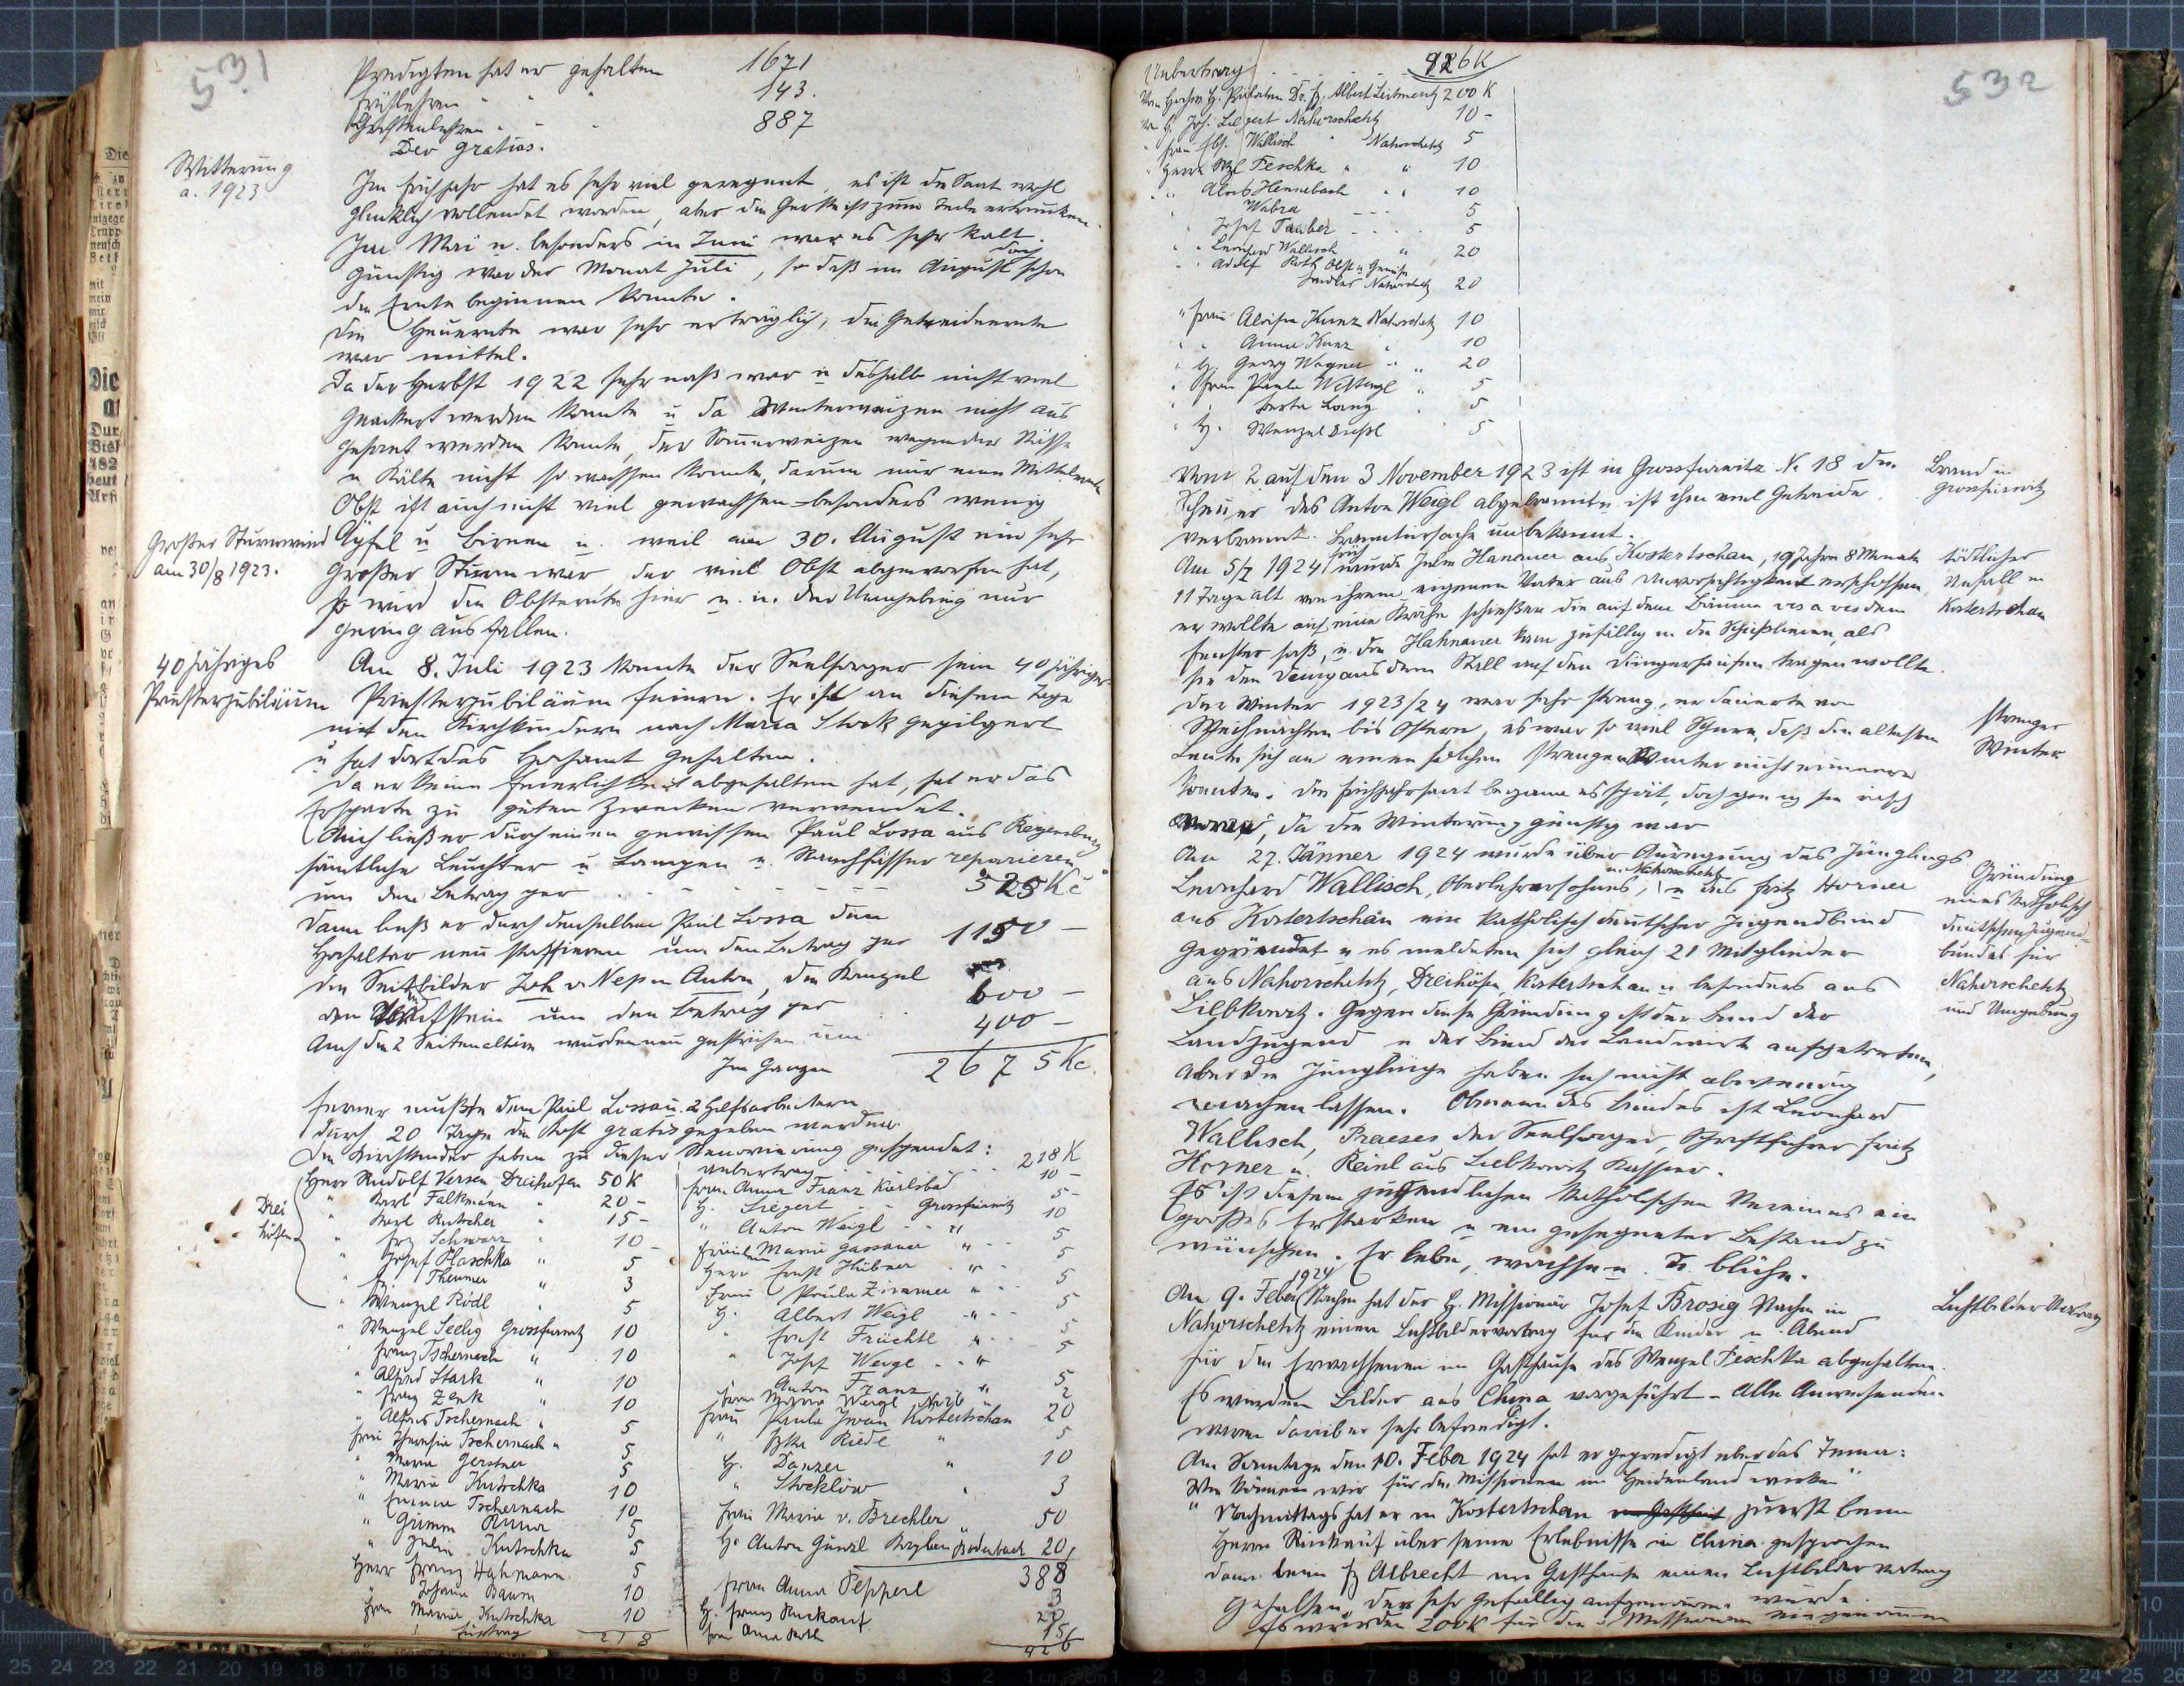 531
Predigten hat er gehalten 1671
Frühlehren " " 143.
Christenlehren " " 887
Deo gratias.
Witterung
a. 1923
Im Frühjahr hat es sehr viel geregnet, es ist die Saat wohl
glücklich vollendet worden, aber die Gerste ist zum Teile ertrunken.
Im Mai u. besonders in Juni war es sehr kalt.
günstig war der Monat Juli, so daß im August schon
die Ernte beginnen konnte.
Die Heuernte war sehr erträglich, die Getreideernte
war mittel.
Da der Herbst 1922 sehr naß war u deshalb nicht viel
geackert werden konnte u da Winterweizen nicht aus
gesäet werden konnte, der Sommerweizen wegen der Nässe
u Kälte nicht so wachsen konnte, darum nur eine Mittelernte
Obst ist auch nicht viel gewachsen – besonders wenig
Großer Sturmwind
am 30/8 1923.
Äpfel u Birnen u. weil am 30. August ein sehr
großer Sturm war der viel Obst abgeworfen hat,
so wird die Obsternte hier u. in der Umgebung nur
gering ausfallen.
40 jähriges
Priesterjubiläum
Am 8. Juli 1923 konnte der Seelsorger sein 40 jähriges
Priesterjubiläum feiern. Er ist an diesem Tage
mit den Kirchkindern nach Maria Stock gepilgert
u hat dort das Hochamt gehalten.
Da er keine Feierlichkeit abgehalten hat, hat er das
Ersparte zu guten Zwecken verwendet.
Auch ließ er durch einen gewissen Paul Lossa aus Regensburg
sämtliche Leuchter u Lampen u. Rauchfässer reparieren
um den Betrag per - - - - - 525 Kč
Dann ließ er durch denselben Paul Lossa den
Hochaltar neu staffieren um den Betrag per 1150 –
die Seitbilder Joh v. Nep u Anton, die Kanzel
den Taufstein um den Betrag per 600 –
Auch die 2 Seitenaltäre wurden neu gestrichen um 400 –
Im Ganzen 2675 Kc.
Ferner mußte dem Paul Lossa u. 2 Hilfsarbeitern
durch 20 Tage die Kost gratis gegeben werden.
Die Kirchkinder haben zu dieser Renovierung gespendet:
Drei
höfen
Herr Rudolf Versen Dreihöfen 50 K
" Karl Falkmann " 20 –
" Karl Kutscher " 15 –
" Frz Schwarz " 10 –
" Josef Plaschka " 5
" Theumer " 3
" Wenzel Rödl " 5
" Wenzel Seelig Grossfürwitz 10
" Franz Tschernach " 10
" Alfred Stark " 10
" Franz Zenk " 10
" Alfons Tschernach " 5
Frau Theresia Tschernach " 5
" Maria Gerstner 5
" Maria Kutschka 10
" Emma Tschernach 10
" Grimm Anna 5
" Julia Kutschka 5
Herr Franz Hahmann 5
" Johann Baum 10
Frau Maria Kutschka 10
Fürtrag 218
Uebertrag - - - 218 K
Frau Anna Franz Karlsbad 10 –
H. Siegert - - Grossfürwitz 5 –
" Anton Weigl " 10
Fräulein Marie Gassauer " 5
Herr Ernst Hübner " 5
Frau Paula Zimmer " 5
H. Albert Weigl " 5
" Ernst Früchtl " 5
" Josef Weigl " 5
" Anton Franz " 5
Frau Marie Weigl No 26 " 2
Frau Paula Iwan Kostertschan 20
" Riedl " 5
H. Danzer " 10
" Stocklöw " 3
Frau Maria v. Brechler 50
H. Anton Günzl Kaplan Bodenbach 20,
388
Frau Anna Pepperl 3
H. Franz Ruckauf 20
Frau Anna Roth 15
426
532
Uebertrag - - - 426 K
Von Hochw. H. Prälaten Dr. Fr. Albert Leitmeritz 200 K
Von H. Joh. Siegert Nahorschetitz 10 –
" Frau Wallisch " Nahorschetitz 5
" Herrn Peschka " " 10
" " Alois Hennebach " " 10
" Wabra - - - 5
" Josef Tauber - - - - 5
" " Leonhard Wallisch " 20
" " Adolf Roth Obst u Gemüse
händler Nahorschetitz 20
" Frau Aloisia Kunz Nahorschetitz 10
" " Anna Kunz " 10
" H. Georg Wagner " 20
" Frau Paula " 5
" " Berta Lang " 5
" H. Wenzel 5
Vom 2 auf den 3 November 1923 ist in Grossfürwitz N. 18 die
Scheuer des Anton Weigl abgebrannt u. ist ihm viel Getreide
verbrannt. Brandursache unbekannt.
Brand in
Grossfürwitz
Am 5/7 1924 früh wurde Julie Hananer aus Kostertschan, 19 Jahre 8 Monate
11 Tage alt von ihrem eigenen Vater aus Unvorsichtigkeit erschossen,
er wollte auf eine Krähe schießen die auf dem Baume vis a vis dem
Fenster saß, u. die Hahnaner kam zufällig in die Schußlinie, als
sie den Dung aus dem Stall auf den Düngerhaufen tragen wollte.
tödtlicher
Unfall in
Kostertschan
Der Winter 1923/24 war sehr streng, er dauerte von
Weihnachten bis Ostern, es war so viel Schnee, daß die ältesten
Leute sich an einen solchen strengen Winter nicht erinnern
konnten. Die Frühjahrsaat begann es spät, doch ging sie rasch
voran, da die Witterung günstig war
strenger
Winter
Am 27. Jänner 1924 wurde über Anregung des Jünglings
Leonhard Wallisch, Oberlehrersohnes, in Nahorschetitz u des Fritz Horner
aus Kostertschan ein katholisch deutscher Jugendbund
gegründet u es meldeten sich gleich 21 Mitglieder
aus Nahorschetitz, Dreihöfen, Kostertschan u besonders aus
Liebkowitz. Gegen diese Gründung ist der Bund der
Landjugend u der Bund der Landwirte aufgetreten,
aber die Jünglinge haben sich nicht abwendig
machen lassen. Obmann des Bundes ist Leonhard
Wallisch, Praeses der Seelsorger, Schriftführer Fritz
Horner u. Reinl aus Liebkowitz Kassier.
Es ist diesem jugendlichen katholischen Vereine ein
großes Erstarken u ein gesegneter Bestand zu
wünschen. Er lebe, wachse u. blühe.
Gründung
eines katholisch
deutschen Jugend-
bundes für
Nahorschetitz
und Umgebung
Am 9. Feber 1924 Nachm hat der H. Missionär Josef Brosig Nachm in
Nahorschetitz einen Lichtbildervortrag für die Kinder u. Abend
für die Erwachsenen im Gasthause des Wenzel Peschka abgehalten.
Es wurden Bilder aus China vorgeführt – Alle Anwesenden
waren darüber sehr befriedigt.
Lichtbilder Vortrag
Am Sonntage den 10. Feber 1924 hat er gepredigt über das Tema:
Wie können wir für die Missionen im Heidenland wirken"
" Nachmittags hat er in Kostertschan zuerst beim
Herrn Rückauf über seine Erlebnisse in China gesprochen
dann beim H Albrecht im Gasthause einen Lichtbilder Vortrag
gehalten der sehr gefällig aufgenommen wurde.
Es wurden 200 K für die Missionen eingenommen